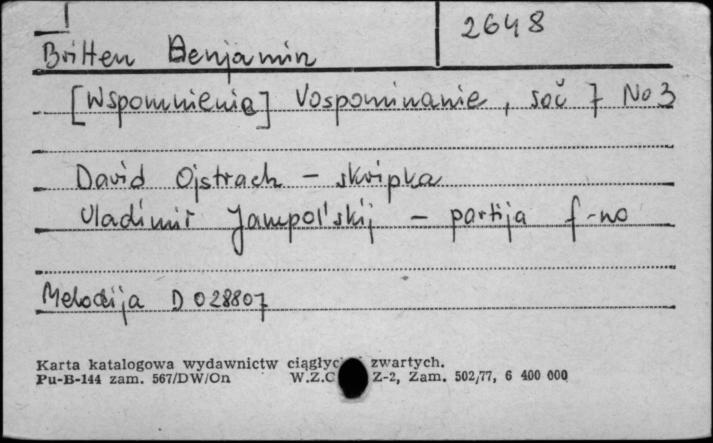 2648
Britten Benjamin
[Wspomnienie] Vospominanie, soč 7 No 3
David Ojstrach – skripka
Vladimir Jampol'skij – partija f-no
Melodija D 028807
Karta katalogowa wydawnictw ciągłyc zwartych.
Pu-B-144 zam. 567/DW/On W.Z.G Z-2, Zam. 502/77, 6 400 000